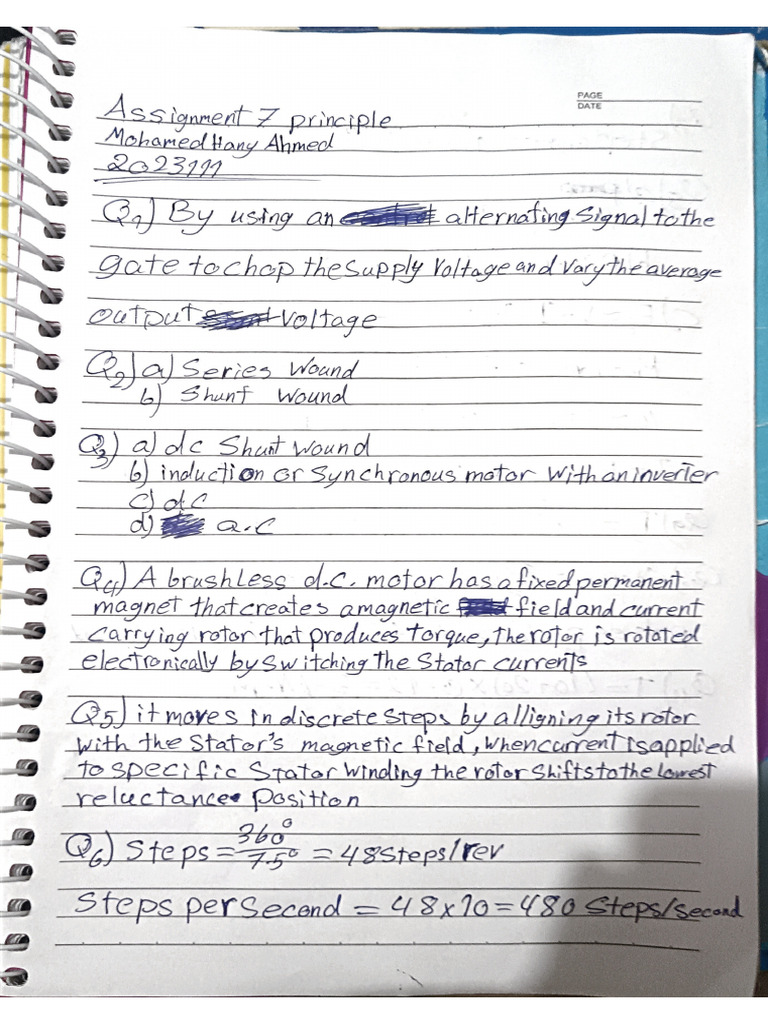 PAGE
DATE
Assignment 7 principle
Mohamed Hany Ahmed
2023111
Q1) By using an alternating signal to the
gate to chop the supply voltage and vary the average
output voltage
Q2) a) Series Wound
b) Shunt Wound
Q3) a) dc Shunt wound
b) induction or synchronous motor with an inverter
c) dc
d) a.c
Q4) A brushless d.c. motor has a fixed permanent
magnet that creates a magnetic field and current
carrying rotor that produces torque, the rotor is rotated
electronically by switching the stator currents
Q5) it moves in discrete steps by alligning its rotor
with the stator's magnetic field, when current is applied
to specific stator winding the rotor shifts to the lowest
reluctance position
Q6) Steps = 360°/7.5° = 48 steps/rev
Steps per Second = 48 x 10 = 480 steps/second